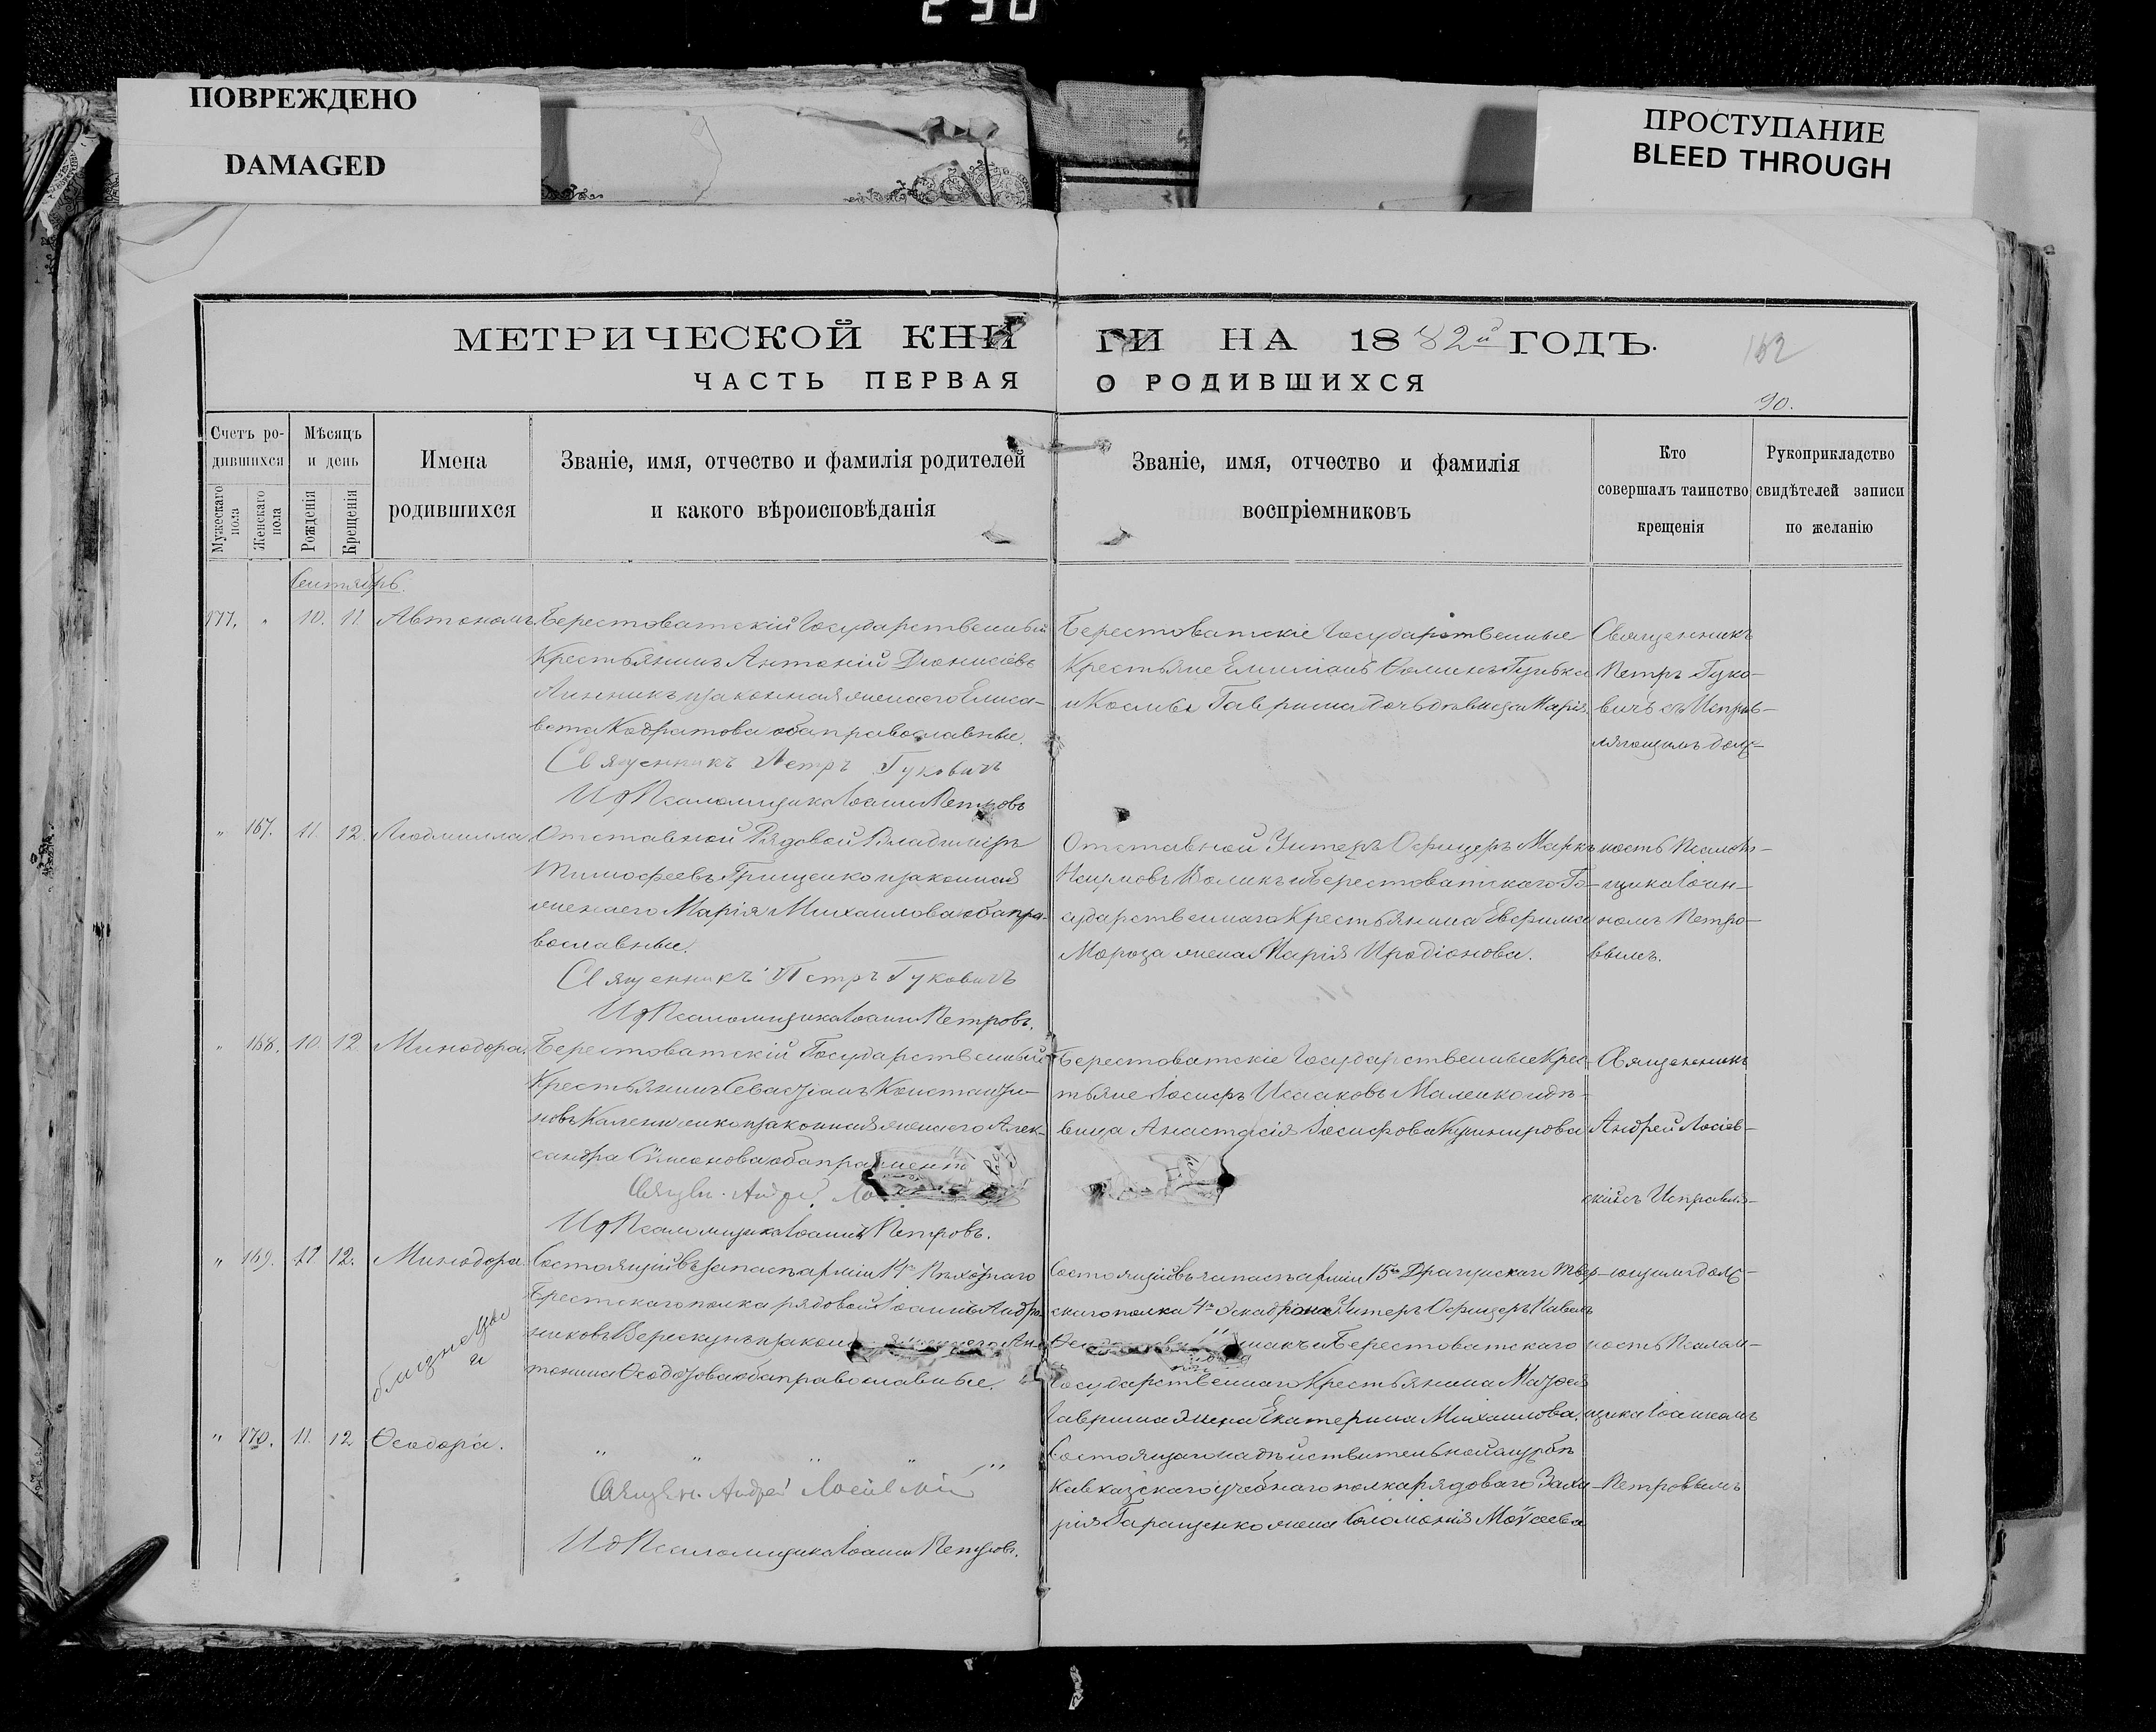 290
ПОВРЕЖДЕНО
DAMAGED
ПРОСТУПАНИЕ
BLEED THROUGH
МЕТРИЧЕСКОЙ КНИГИ НА 1882й ГОДЪ.
162
ЧАСТЬ ПЕРВАЯ О РОДИВШИХСЯ
90.
Счетъ ро-
дившихся
Мужескаго пола
Женскаго пола
Мѣсяцъ
и день
Рожденія
Крещенія
Имена
родившихся
Званіе, имя, отчество и фамилія родителей
и какого вѣроисповѣданія
Званіе, имя, отчество и фамилія
воспріемниковъ
Кто
совершалъ таинство
крещенія
Рукоприкладство
свидѣтелей записи
по желанію
Сентябрь.
177. " 10. 11. Автономъ.
Берестоватскій Государственный
Крестьянинъ Антоній Діонисіевъ
законная жена его Елиса-
вета Кодратова оба православные.
Священникъ Петръ Гуковичъ
И д Псаломщика Іоаннъ Петровъ
Берестоватскіе Государственные
Крестьяне Емиліанъ
и Космы Гавриша дочь дѣвица Марія.
Священникъ
Петръ Гуко-
вичъ съ Исправ-
ляющимъ долж-
" 167. 11. 12. Людмилла
Отставной Рядовой Владиміръ
Тимофеевъ Грищенко и законная
жена его Марія Михаилова оба пра-
вославные.
Священникъ Петръ Гуковичъ
И д Псаломщика Іоаннъ Петровъ.
Отставной Унтеръ Офицеръ Маркъ
Наумовъ Воликъ и Берестоватскаго Го-
сударственнаго Крестьянина Евфимія
Мороза жена Марія Иродіонова.
ность Псалом-
щика Іоан-
номъ Петро-
вымъ.
" 168. 10. 12. Минодора.
Берестоватскій Государственный
Крестьянинъ Севастіанъ Константи-
новъ и законная жена его Алек-
сандра Симонова оба
Священ. Андрей
И д Псаломщика Іоаннъ Петровъ.
Берестоватскіе Государственные Крес-
тьяне Іосифъ Исааковъ Маленко и дѣ-
вица Анастасія Іосифова
Священникъ
Андрей Лосіев-
скій съ Исправля-
" 169. 11. 12. Минодора.
близнецы
и
Состоящій въ запасѣ арміи Пѣхотнаго
Брестскаго полка рядовой Іоаннъ Андро-
никовъ Верескунъ и законная жена его Ан-
тонина Ѳеодотова оба православные.
Состоящій въ запасѣ арміи 15го Драгунскаго Твер-
скаго полка 4го Эскадрона Унтеръ Офицеръ Павелъ
и Берестоватскаго
Государственнаго Крестьянина Матѳея
Гавриша жена Екатерина Михаилова.
ющимъ долж-
ность Псалом-
щика Іоанномъ
" 170. 11. 12 Ѳеодора.
" " " " "
Священ. Андрей Лосіевскій
И д Псаломщика Іоаннъ Петровъ.
Состоящаго на дѣйствительной службѣ
Кавказскаго учебнаго полка рядоваго Заха-
рія Гаращенко жена Соломонія Моѵсеева
Петровымъ